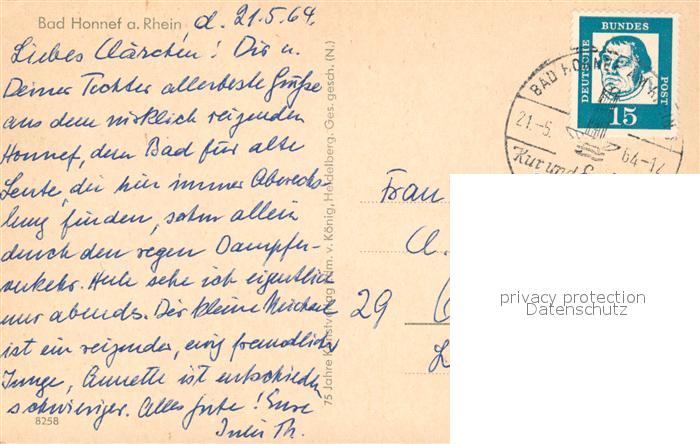 Bad Honnef a. Rhein d. 21.5.64.
Liebes Clärchen! Dir u.
Deiner Tochter allerbeste Grüße
aus dem wirklich reizenden
Honnef, dem Bad für alte
Leute, die hier immer Abwechs-
lung finden, schon allein
durch den regen Dampfer-
verkehr. Helu sehe ich eigentlich
nur abends. Der kleine Michael
ist ein reizender, ewig freundlicher
Junge, Annette ist entschieden
schwieriger. Alles Gute! Eure
Th.
8258
75 Jahre Kunstverlag Wilm. v. König, Heidelberg. Ges. gesch. (N.)
DEUTSCHE BUNDES POST
15
BAD HONNEF
21.-5. 64-14
Kur und
Frau
29
privacy protection
Datenschutz